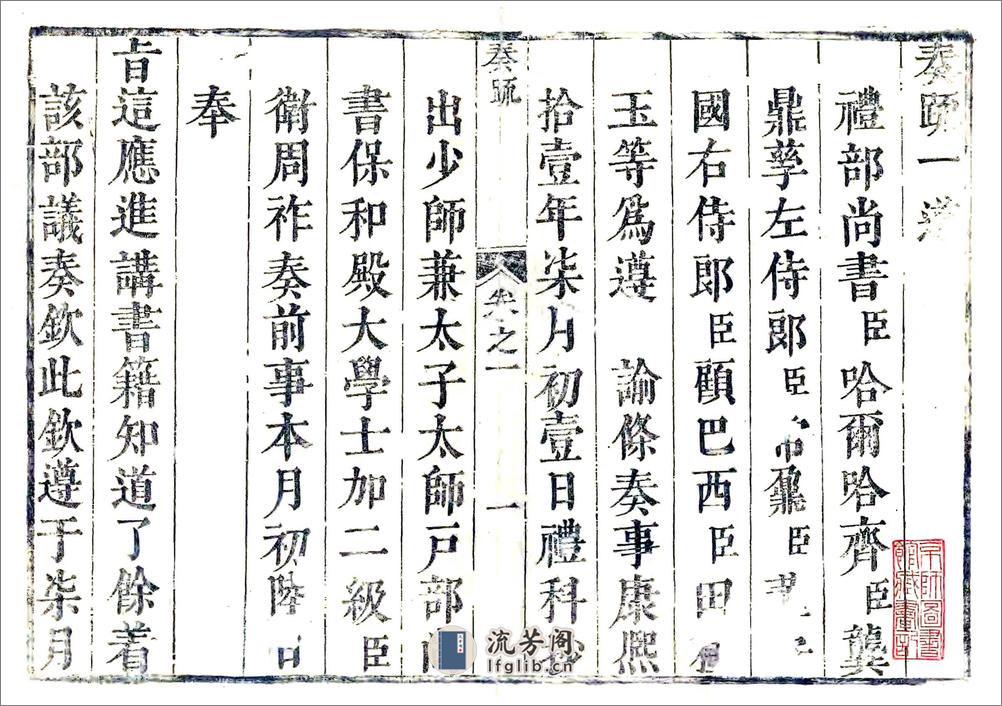 奏疏一道
禮部尚書臣哈爾哈齊臣龔
鼎孳左侍郎臣常鼐臣
國右侍郎臣顧巴西臣田
玉等爲遵 諭條奏事康熙
拾壹年柒月初壹日禮科
奏疏
卷之一
一
出少師兼太子太師戶部
書保和殿大學士加二級臣
衛周祚奏前事本月初陸日
奉
旨這應進講書籍知道了餘着
該部議奏欽此欽遵于柒月
京師圖書
館藏書記
流芳阁
lfglib.cn